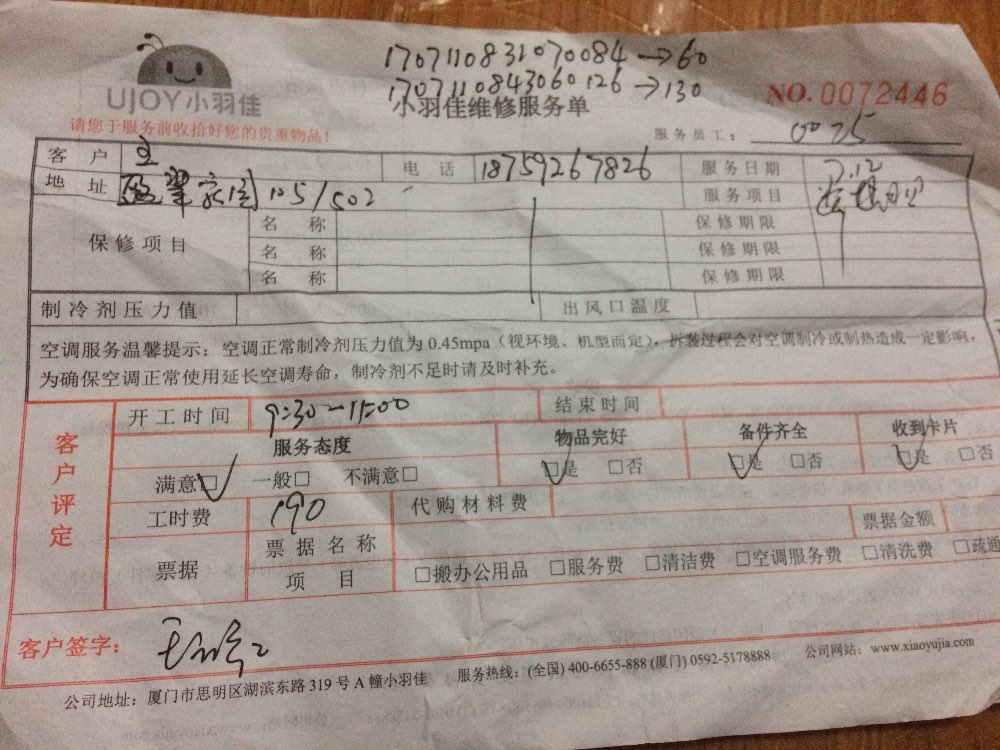 1707110831070084→60
1707110843060126→130
UJOY小羽佳
小羽佳维修服务单
NO.0072446
请您于服务前收拾好您的贵重物品！
服务员工： 0075
客户 王 电话 18759267826 服务日期 7.12
地址 105/502 服务项目
保修项目
名称 保修期限
名称 保修期限
名称 保修期限
制冷剂压力值 出风口温度
空调服务温馨提示：空调正常制冷剂压力值为 0.45mpa（视环境、机型而定），拆装过程会对空调制冷或制热造成一定影响，
为确保空调正常使用延长空调寿命，制冷剂不足时请及时补充。
客户评定
开工时间 9:30-11:00 结束时间
服务态度 物品完好 备件齐全 收到卡片
满意☑ 一般□ 不满意□ ☑是 □否 ☑是 □否 ☑是 □否
工时费 190 代购材料费
票据 票据名称 票据金额
项目 □搬办公用品 □服务费 □清洁费 □空调服务费 □清洗费 □疏通
客户签字：
公司地址：厦门市思明区湖滨东路 319 号 A 幢小羽佳 服务热线：(全国) 400-6655-888 (厦门) 0592-5178888 公司网站：www.xiaoyujia.com